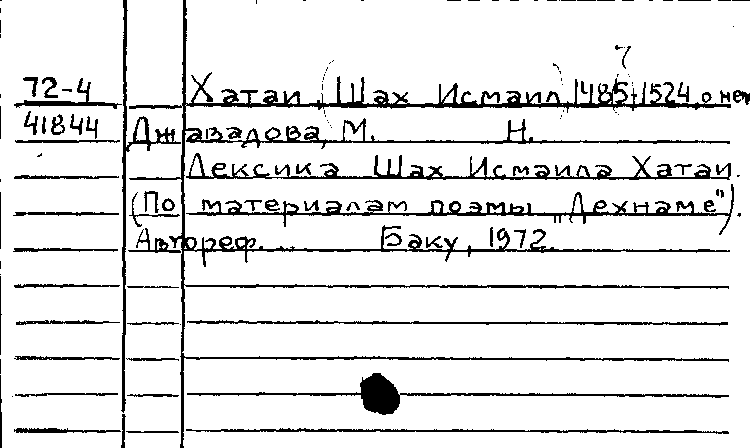 72-4 Хатаи (Шах Исмаил), 1485-1524, о нем
41844 Джавадова, М. Н.
Лексика Шах Исмаила Хатаи.
(По материалам поэмы „Дехнаме").
Автореф. ... Баку, 1972.